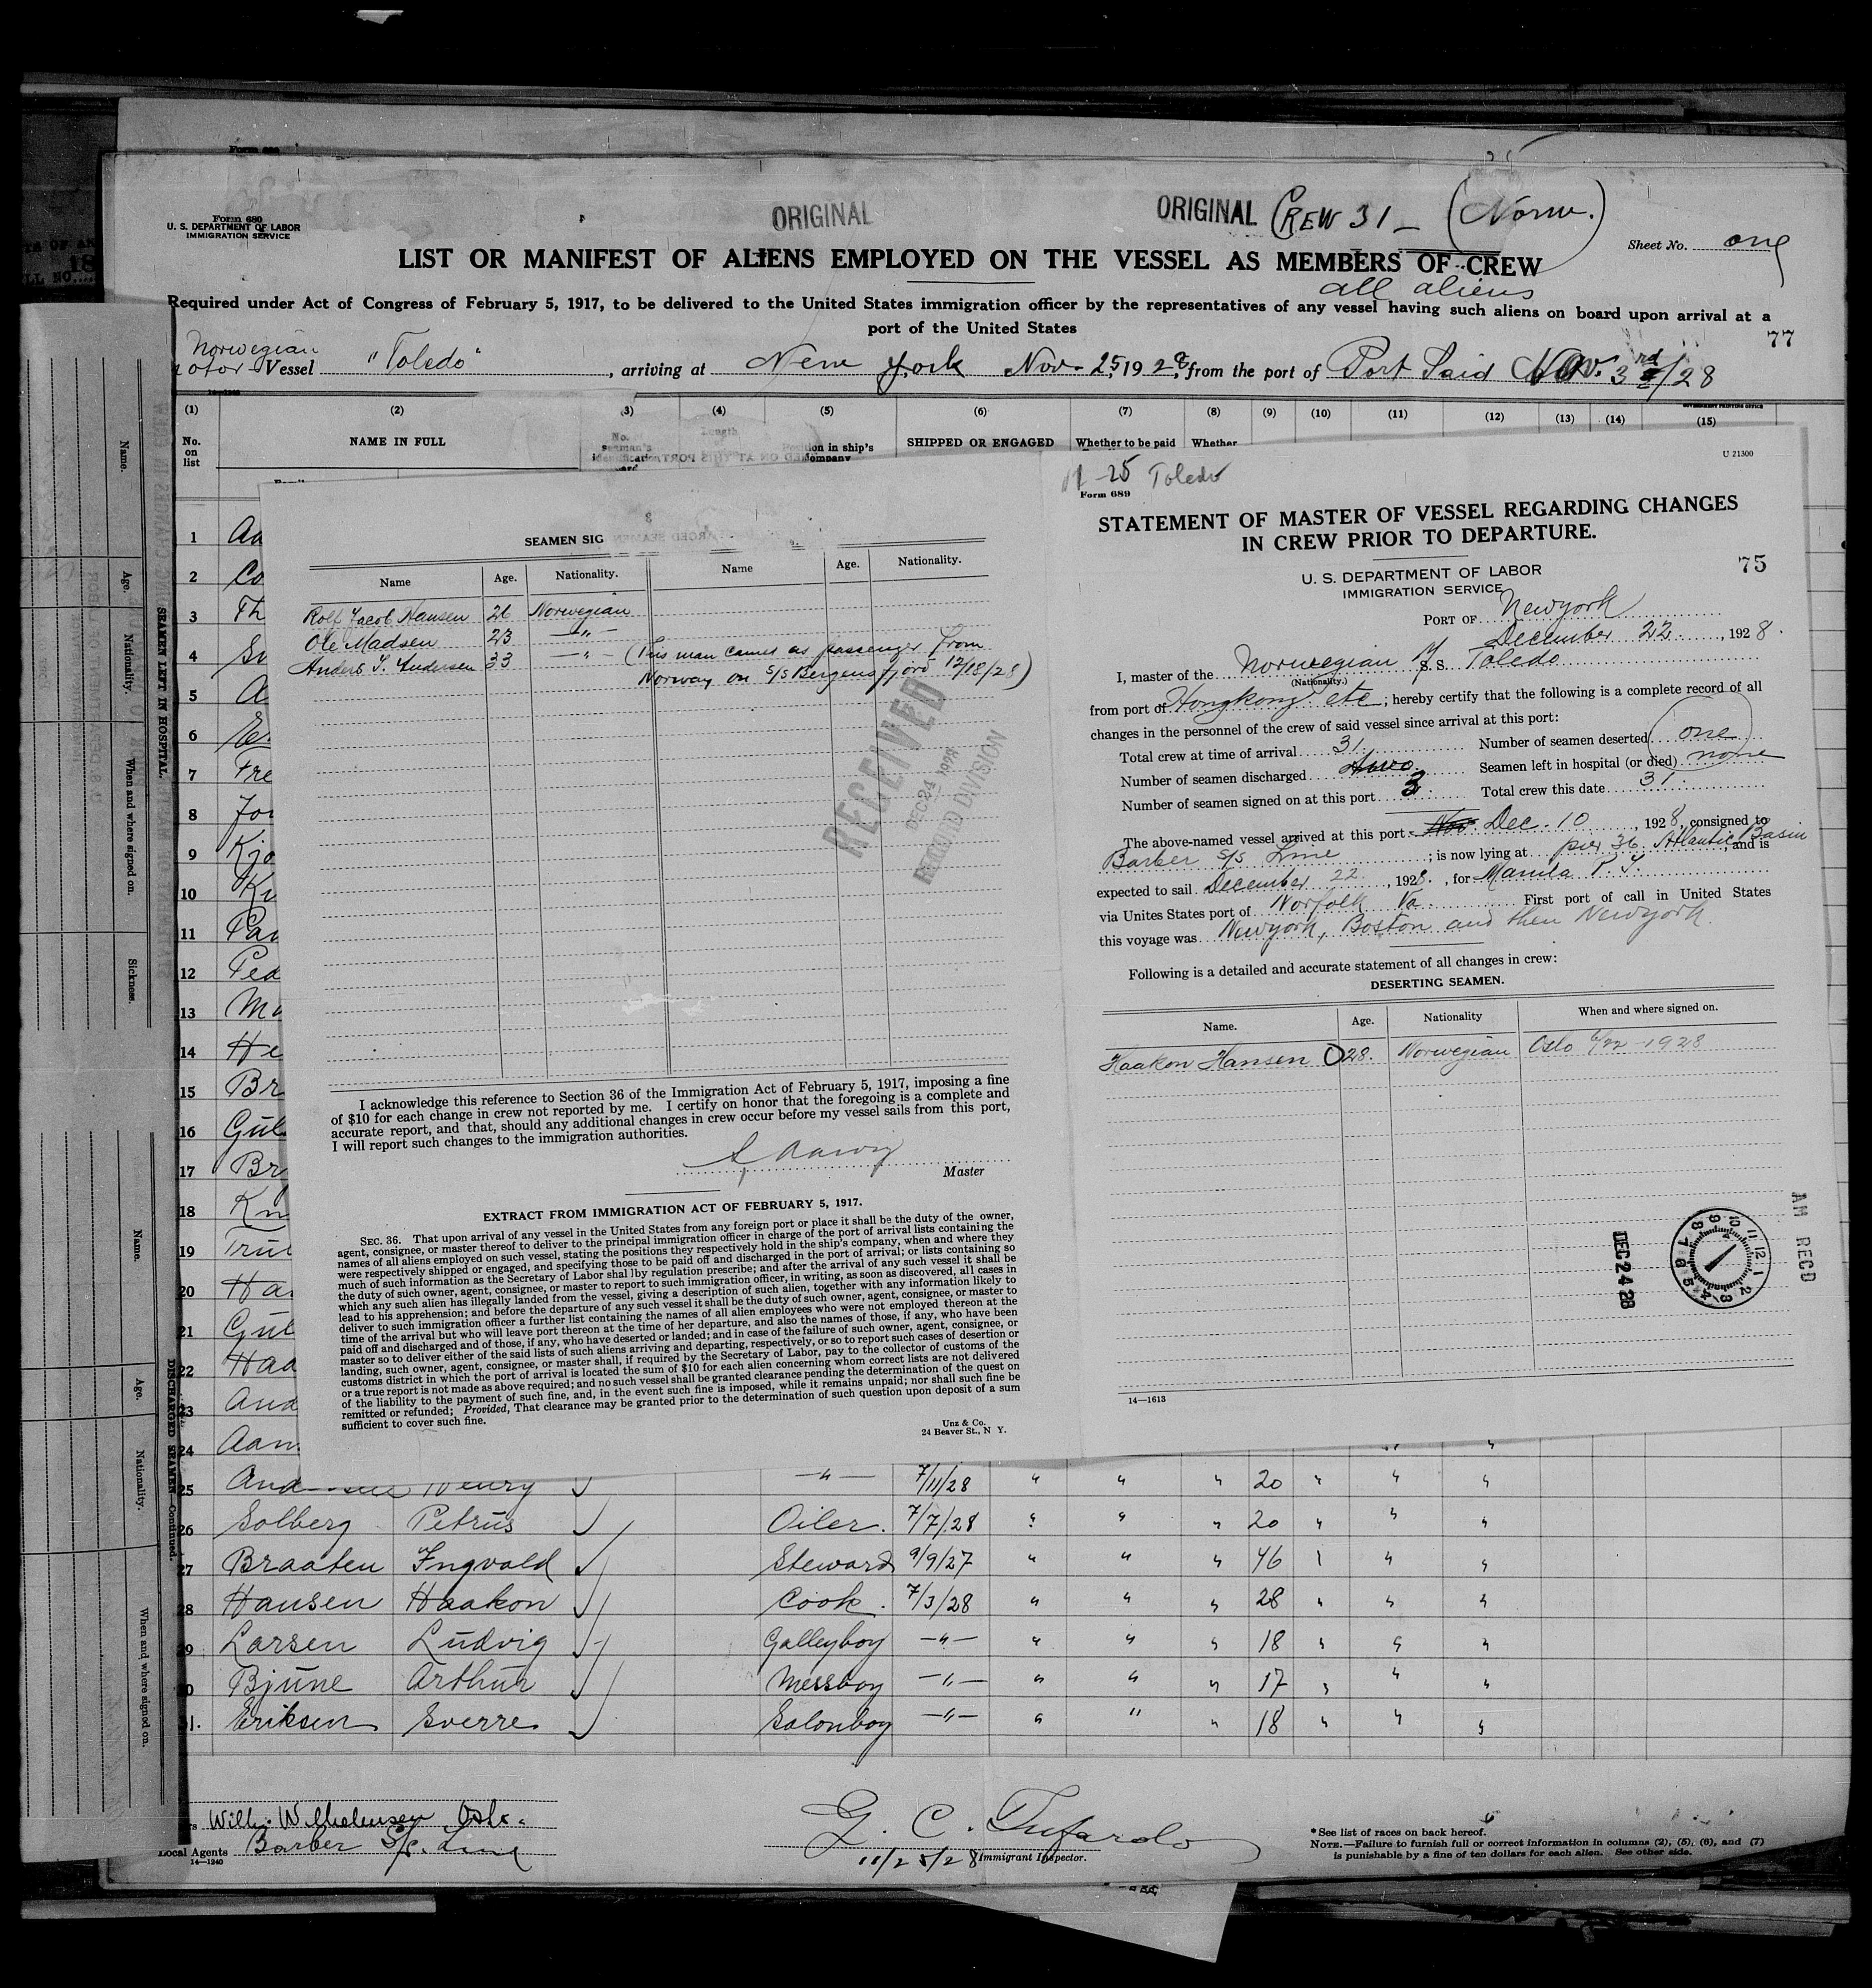 Form 680
U. S. DEPARTMENT OF LABOR
IMMIGRATION SERVICE
ORIGINAL
ORIGINAL CREW 31 - (Norw.)
Sheet No. one
LIST OR MANIFEST OF ALIENS EMPLOYED ON THE VESSEL AS MEMBERS OF CREW
all aliens
Required under Act of Congress of February 5, 1917, to be delivered to the United States immigration officer by the representatives of any vessel having such aliens on board upon arrival at a
port of the United States
77
Norwegian
motor Vessel "Toledo", arriving at New York Nov. 25, 1928, from the port of Port Said Nov. 3rd/28
(1) (2) (3) (4) (5) (6) (7) (8) (9) (10) (11) (12) (13) (14) (15)
No. on list
NAME IN FULL
SHIPPED OR ENGAGED
Whether to be paid
Whether
1 Aa
2 Co
3 Th
4
5 A
6
7 Fre
8
9 Kjo
10
11
12 Ped
13
14 He
15 Br
16 Gul
17 Br
18
19 Trul
20 Ha
21 Gul
22 Haa
23 And
24
SEAMEN SIG
Name Age. Nationality. Name Age. Nationality.
Rolf Jacob Hansen 26 Norwegian
Ole Madsen 23 —"—
Anders T. Andersen 33 —"— (This man came as passenger from
Norway on S/S Bergensfjord 12/18/28)
RECEIVED
DEC 24 1928
RECORD DIVISION
I acknowledge this reference to Section 36 of the Immigration Act of February 5, 1917, imposing a fine
of $10 for each change in crew not reported by me. I certify on honor that the foregoing is a complete and
accurate report, and that, should any additional changes in crew occur before my vessel sails from this port,
I will report such changes to the immigration authorities.
Master
EXTRACT FROM IMMIGRATION ACT OF FEBRUARY 5, 1917.
SEC. 36. That upon arrival of any vessel in the United States from any foreign port or place it shall be the duty of the owner,
agent, consignee, or master thereof to deliver to the principal immigration officer in charge of the port of arrival lists containing the
names of all aliens employed on such vessel, stating the positions they respectively hold in the ship's company, when and where they
were respectively shipped or engaged, and specifying those to be paid off and discharged in the port of arrival; or lists containing so
much of such information as the Secretary of Labor shall by regulation prescribe; and after the arrival of any such vessel it shall be
the duty of such owner, agent, consignee, or master to report to such immigration officer, in writing, as soon as discovered, all cases in
which any such alien has illegally landed from the vessel, giving a description of such alien, together with any information likely to
lead to his apprehension; and before the departure of any such vessel it shall be the duty of such owner, agent, consignee, or master to
deliver to such immigration officer a further list containing the names of all alien employees who were not employed thereon at the
time of the arrival but who will leave port thereon at the time of her departure, and also the names of those, if any, who have been
paid off and discharged and of those, if any, who have deserted or landed; and in case of the failure of such owner, agent, consignee, or
master so to deliver either of the said lists of such aliens arriving and departing, respectively, or so to report such cases of desertion or
landing, such owner, agent, consignee, or master shall, if required by the Secretary of Labor, pay to the collector of customs of the
customs district in which the port of arrival is located the sum of $10 for each alien concerning whom correct lists are not delivered
or a true report is not made as above required; and no such vessel shall be granted clearance pending the determination of the quest on
of the liability to the payment of such fine, and, in the event such fine is imposed, while it remains unpaid; nor shall such fine be
remitted or refunded; Provided, That clearance may be granted prior to the determination of such question upon deposit of a sum
sufficient to cover such fine.
Unz & Co.
24 Beaver St., N Y.
U 21300
11-25 Toledo
Form 689
STATEMENT OF MASTER OF VESSEL REGARDING CHANGES
IN CREW PRIOR TO DEPARTURE.
75
U. S. DEPARTMENT OF LABOR
IMMIGRATION SERVICE
PORT OF Newyork
December 22, 1928.
I, master of the Norwegian M/S Toledo
(Nationality.)
from port of Hongkong etc; hereby certify that the following is a complete record of all
changes in the personnel of the crew of said vessel since arrival at this port:
Total crew at time of arrival 31. Number of seamen deserted (one)
Number of seamen discharged two Seamen left in hospital (or died) none
Number of seamen signed on at this port 3. Total crew this date 31.
The above-named vessel arrived at this port Nov. Dec. 10, 1928, consigned to
Barber S/S Line; is now lying at pier 36 Atlantic Basin, and is
expected to sail December 22, 1928., for Manila P. I.
via Unites States port of Norfolk Va. First port of call in United States
this voyage was Newyork, Boston and then Newyork
Following is a detailed and accurate statement of all changes in crew:
DESERTING SEAMEN.
Name. Age. Nationality When and where signed on.
Haakon Hansen 28. Norwegian Oslo 6/22-1928
AM RECD
DEC 24 28
14—1613
25 Henry —"— 7/11/28 " " " 20 " " "
26 Solberg Petrus Oiler. 7/7/28 " " " 20 " " "
27 Braaten Ingvald Steward 9/9/27 " " " 46 " " "
28 Hansen Haakon Cook. 7/3/28 " " " 28 " " "
29 Larsen Ludvig Galleyboy —"— " " " 18 " " "
30 Bjune Arthur Messboy —"— " " " 17 " " "
31. Eriksen Sverre Salonboy —"— " " " 18 " " "
Wilh. Wilhelmsen Oslo.
Local Agents Barber S/S. Line
14—1240
11/25/28 Immigrant Inspector.
* See list of races on back hereof.
NOTE.—Failure to furnish full or correct information in columns (2), (5), (6), and (7)
is punishable by a fine of ten dollars for each alien. See other side.
SEAMEN LEFT IN HOSPITAL.
Name. Age. Nationality. When and where signed on. Sickness.
DISCHARGED SEAMEN—Continued.
Name. Age. Nationality. When and where signed on.